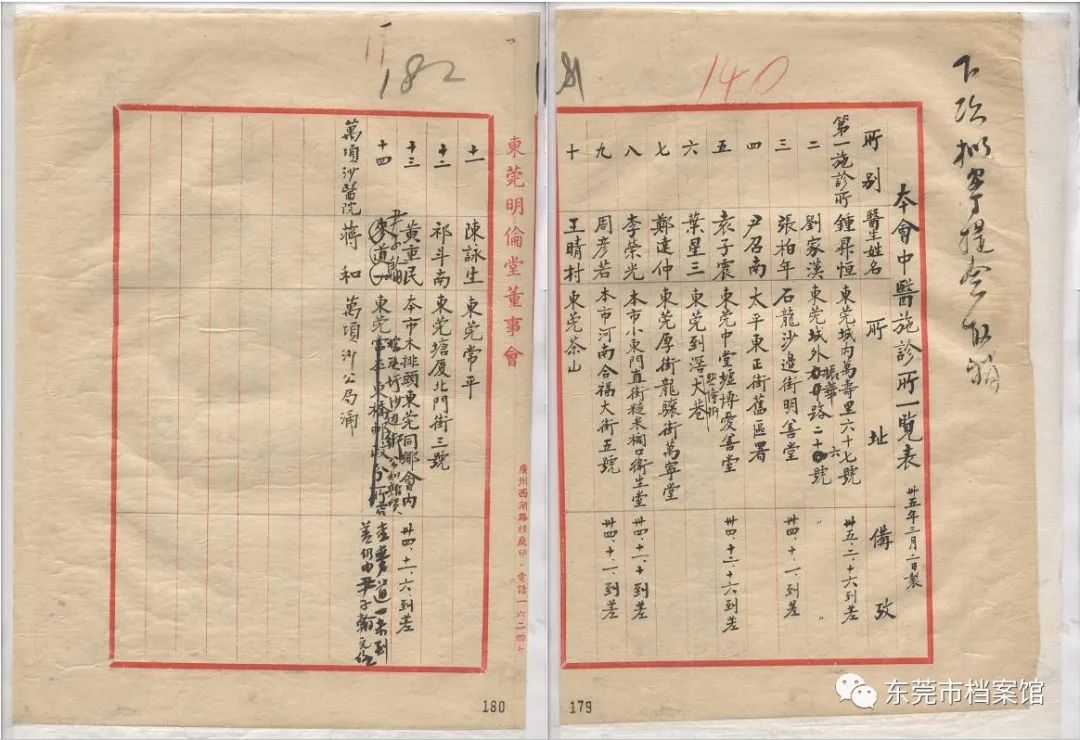 140
本會中醫施診所一覽表 卅五年三月二日製
所別 醫生姓名 所址 備攷
第一施診所 鍾鼎恒 東莞城內萬壽里六十七號 卅五、二、十六到差
二 劉家漢 東莞城外振華路二十六號
三 張柏年 石龍沙邊街明善堂 卅四、十一、一到差
四 尹召南 太平東正街舊區署
五 袁子震 東莞中堂墟博愛善堂 卅四、十二、十六到差
六 葉星三 東莞到滘大巷
七 鄭達仲 東莞厚街龍驤街萬寧堂
八 李榮光 本市小東門直街糙米欄口衛生堂 卅四、十一、十到差
九 周彥若 本市河南合福大街五號 卅四、十一、一到差
十 王晴村 東莞茶山
179
182
東莞明倫堂董事會
廣州西湖路桂庭印・電話一六二四七
十一 陳詠生 東莞常平
十二 祁斗南 東莞塘厦北門街三號
十三 黃重民 本市木排頭東莞同鄉會內 卅四、十一、六到差
十四 尹子翰
萬頃沙醫院 蔣和 萬頃沙公局涌
180
东莞市档案馆